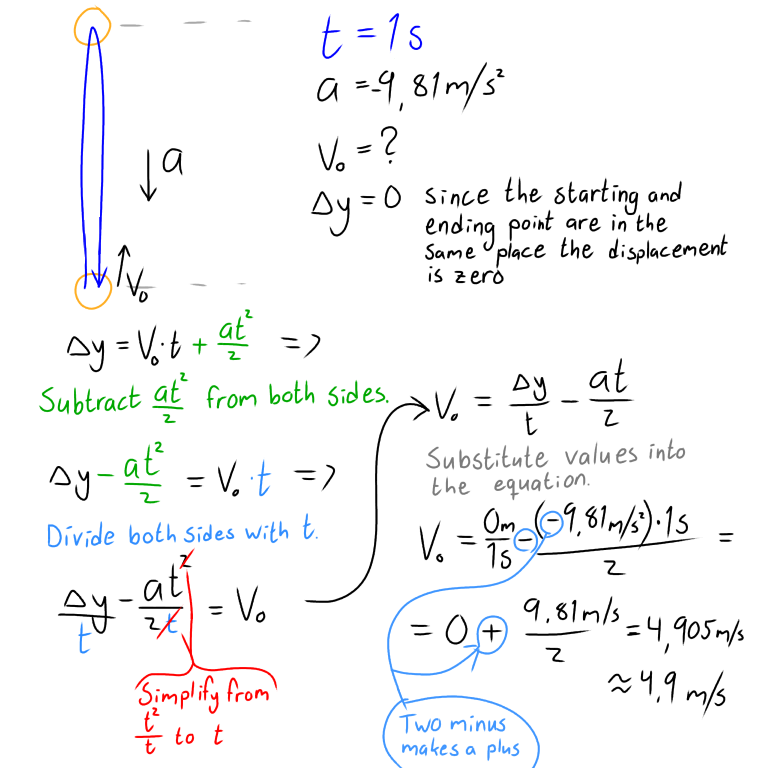 t = 1s
a = -9,81 m/s²
V₀ = ?
Δy = 0 since the starting and
ending point are in the
same place the displacement
is zero
a
V₀
Δy = V₀·t + at²/2 =>
Subtract at²/2 from both sides.
Δy - at²/2 = V₀·t =>
Divide both sides with t.
Δy/t - at²/2t = V₀
Simplify from
t²/t to t
V₀ = Δy/t - at/2
Substitute values into
the equation.
V₀ = 0m/1s - (-9,81m/s²)·1s/2 =
= 0 + 9,81m/s/2 = 4,905m/s
≈ 4,9 m/s
Two minus
makes a plus